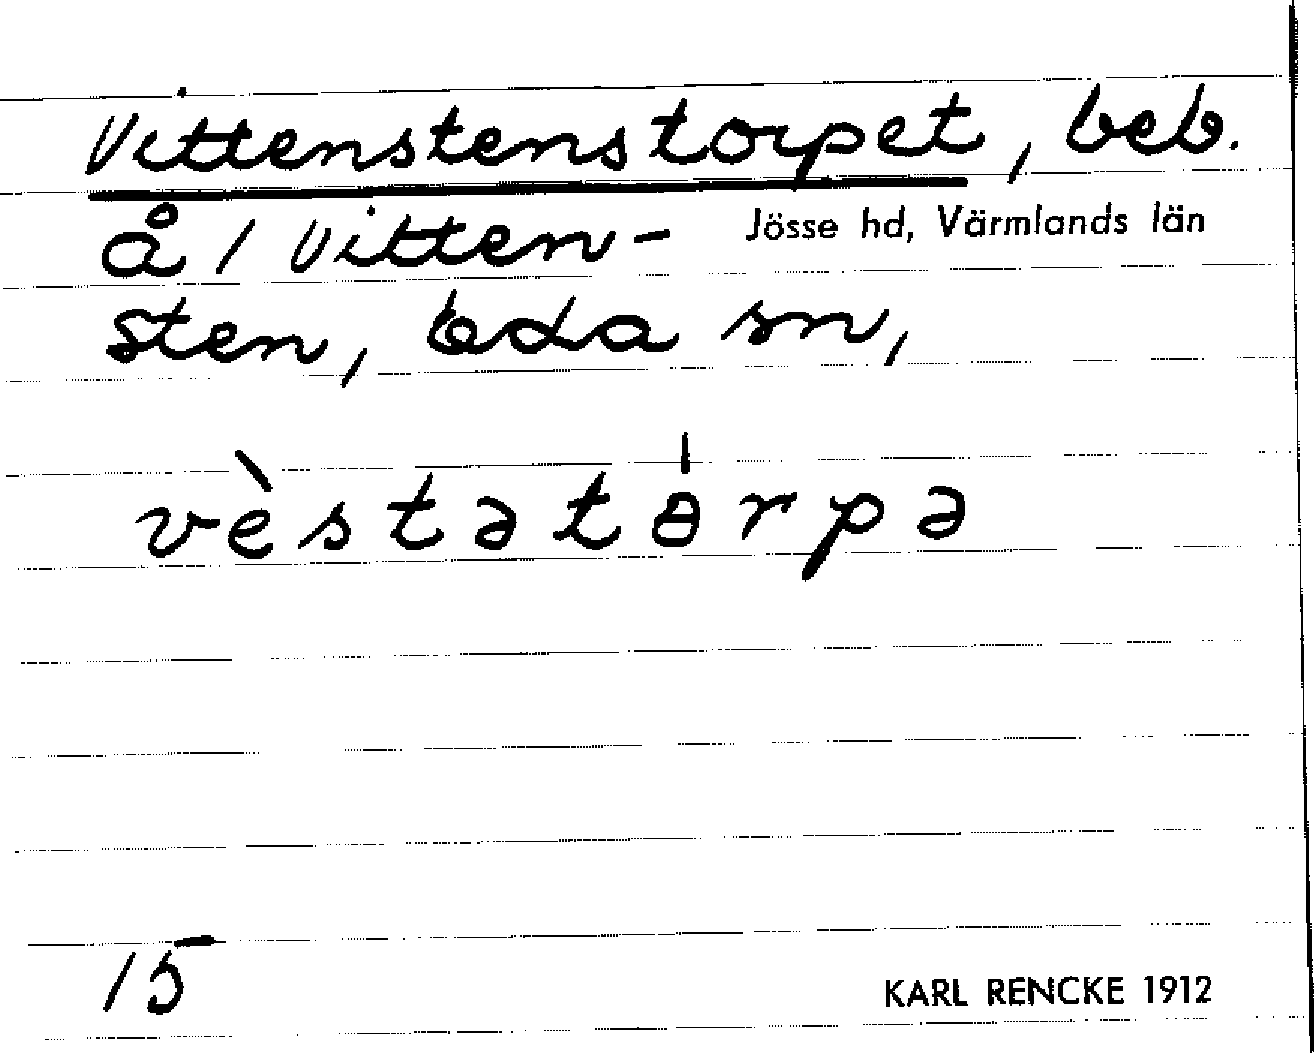 Vittenstenstorpet, beb.
å 1 Vitten-
sten, Eda sn,
Jösse hd, Värmlands län
vèstətɵ̍rpə
15
KARL RENCKE 1912